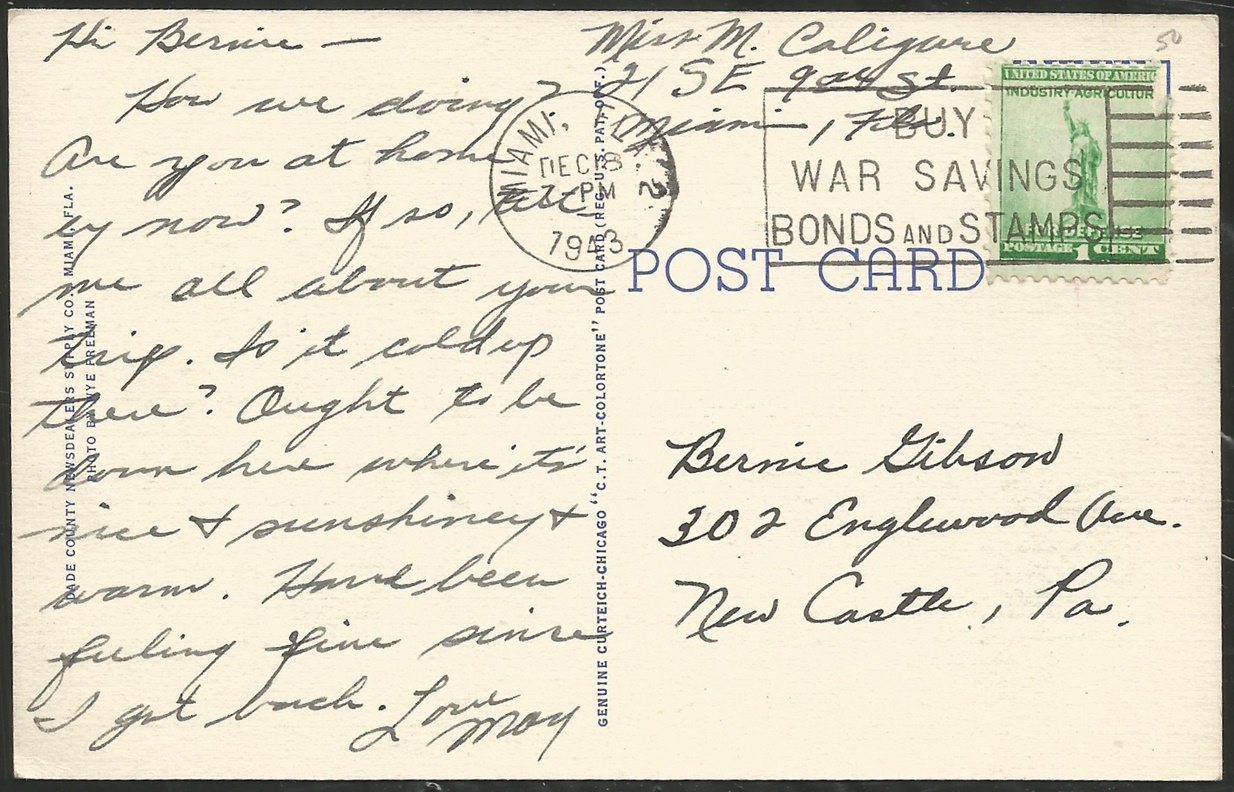 Hi Bernie —
How we doing?
Are you at home
by now? If so, tell
me all about your
trip. Is it cold up
there? Ought to be
down here where it's
nice & sunshiney &
warm. Have been
feeling fine since
I got back. Love
May
Miss M. Caligure
21 SE 9th St.
Miami, Fla.
50
MIAMI, FLA. 2
DEC 18
7-PM
1943
BUY
WAR SAVINGS
BONDS AND STAMPS
UNITED STATES OF AMERIC
INDUSTRY AGRICULTUR
POSTAGE 1 CENT
POST CARD
Bernie Gibson
302 Englewood Ave.
New Castle, Pa.
DADE COUNTY NEWSDEALERS SUPPLY CO. MIAMI, FLA.
PHOTO BY FREEMAN
GENUINE CURTEICH-CHICAGO "C.T. ART-COLORTONE" POST CARD (REG. U.S. PAT. OFF.)